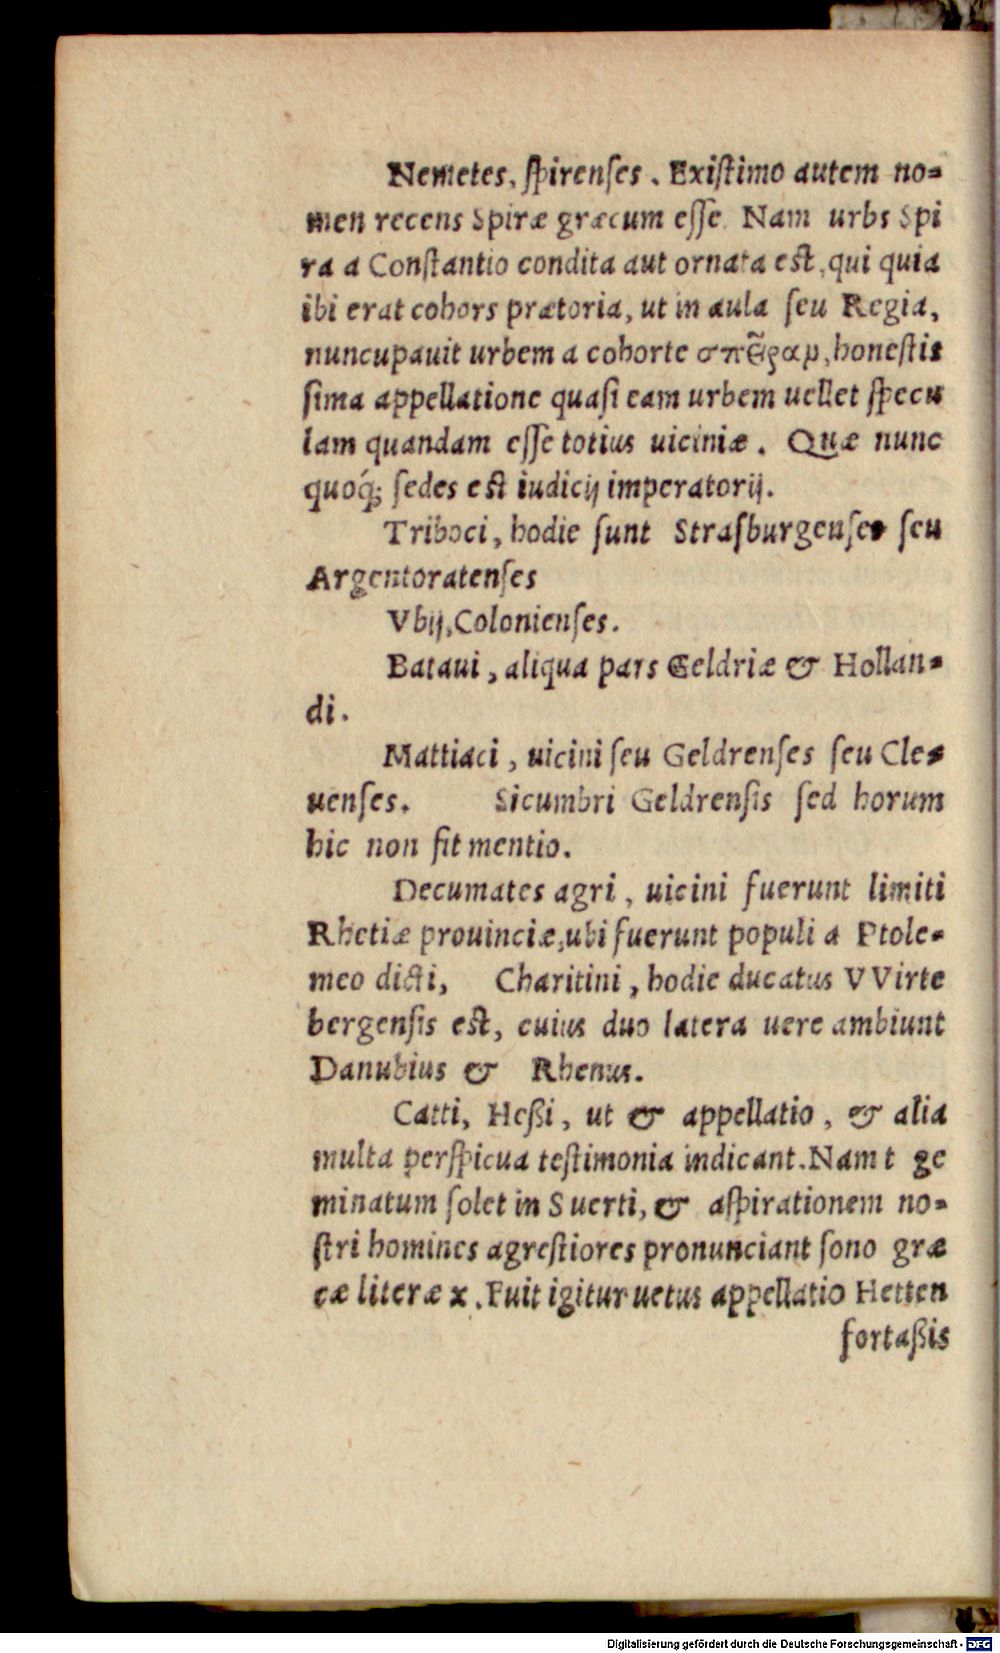 Nemetes, spirenses. Existimo autem no-
men recens Spiræ græcum esse. Nam urbs Spi
ra a Constantio condita aut ornata est, qui quia
ibi erat cohors prætoria, ut in aula seu Regia,
nuncupauit urbem a cohorte honestis
sima appellatione quasi eam urbem uellet specu
lam quandam esse totius uiciniæ. Quæ nunc
quoq́; sedes est iudicij imperatorij.
Triboci, hodie sunt Strasburgenses seu
Argentoratenses
Vbij, Colonienses.
Bataui, aliqua pars Geldriæ & Hollan-
di.
Mattiaci, uicini seu Geldrenses seu Cle-
uenses. Sicumbri Geldrensis sed horum
hic non fit mentio.
Decumates agri, uicini fuerunt limiti
Rhetiæ prouinciæ, ubi fuerunt populi a Ptole-
meo dicti, Charitini, hodie ducatus VVirte
bergensis est, cuius duo latera uere ambiunt
Danubius & Rhenus.
Catti, Heßi, ut & appellatio, & alia
multa perspicua testimonia indicant. Nam t ge
minatum solet in S uerti, & aspirationem no-
stri homines agrestiores pronunciant sono græ
cæ literæ x. Fuit igitur uetus appellatio Hetten
fortaßis
Digitalisierung gefördert durch die Deutsche Forschungsgemeinschaft - DFG